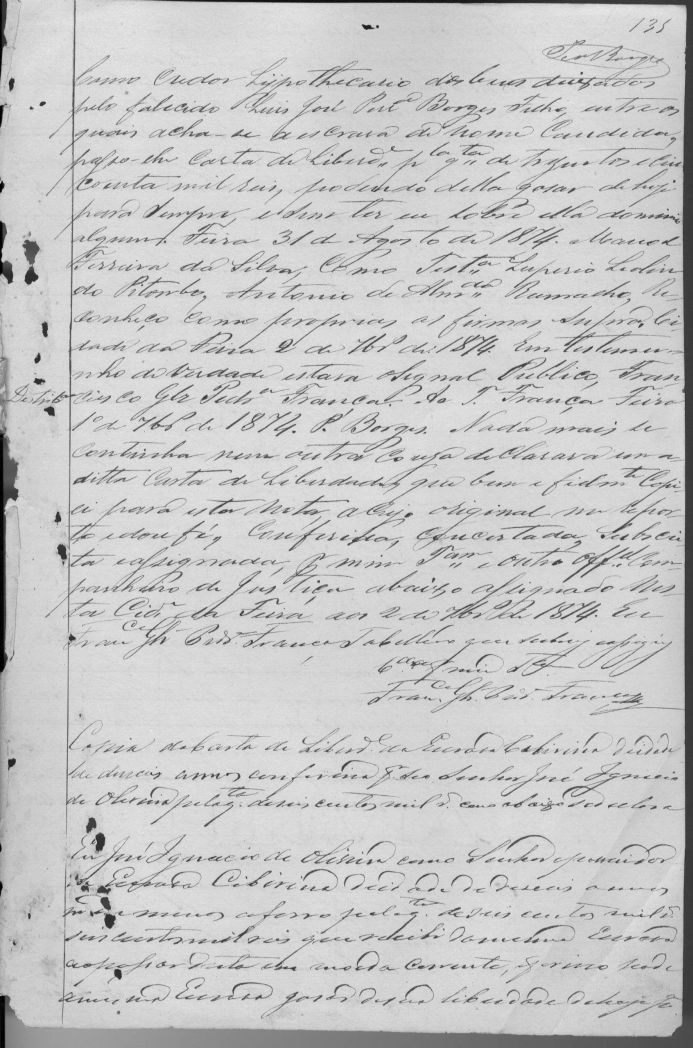 135
Como Credor Hypothecario dos bens deixados
pelo falecido Luis José Per.ª Borges Filho, entre os
quais acha-se a escrava de nome Candida,
passo-lhe Carta de Liberd.e p.la q.ta de trezentos e cin
coenta mil reis, podendo della gosar de hoje
para sempre, e sem ter eu sobre ella dominio
algum. Feira 31 de Agosto de 1874. Manoel
Ferreira da Silva, Como Test.a Luperio Leolin
do Pitombo, Antonio de Alm.da Ramacho, Re
conheço como proprias as firmas supra. Ci
dade da Feira 2 de 7br.º de 1874. Em testemu-
nho de verdade estava o signal Publico, Fran
Destrib.am
cisco Glz Pedr.a França. Ao T. França Feira
1º de 7br.º de 1874. P. Borges. Nada mais se
continha nem outra Couza declarava em a
ditta Carta de Liberdade, que bem e fielm.te Copi
ei para esta Nota, a cujo original me repor
to e dou fé, Conferida, Concertada, Subscri
ta e assignada, p.r mim T.am e outro Off.al Com
panheiro de Justiça abaixo assignado nes
ta Cid.e da Feira aos 2 de 7br.º de 1874. Eu
Fran.co Glz Pedr.a França Tabellião que subscrevi e assignei
C.da p.r mim T.am
Fran.co Glz. Ped.a França
Copia da Carta de Liberd.e da Escrava Cibirina de idade
de deseis annos conferida p.r seo Senhor José Ignacio
de Oliveira pela q.ta de seis centos mil r.s como abaixo se declara
Eu José Ignacio de Oliveira como Senhor e possuidor
da Escrava Cibirina de idade de deseis annos
mais ou menos a forro pela q.ta de seis centos mil r.s
seis centos mil reis que recebi da mesma Escrava
ao passar desta em moeda corrente, e por isso pode
a mesma Escrava gosar de sua liberdade de hoje p.a